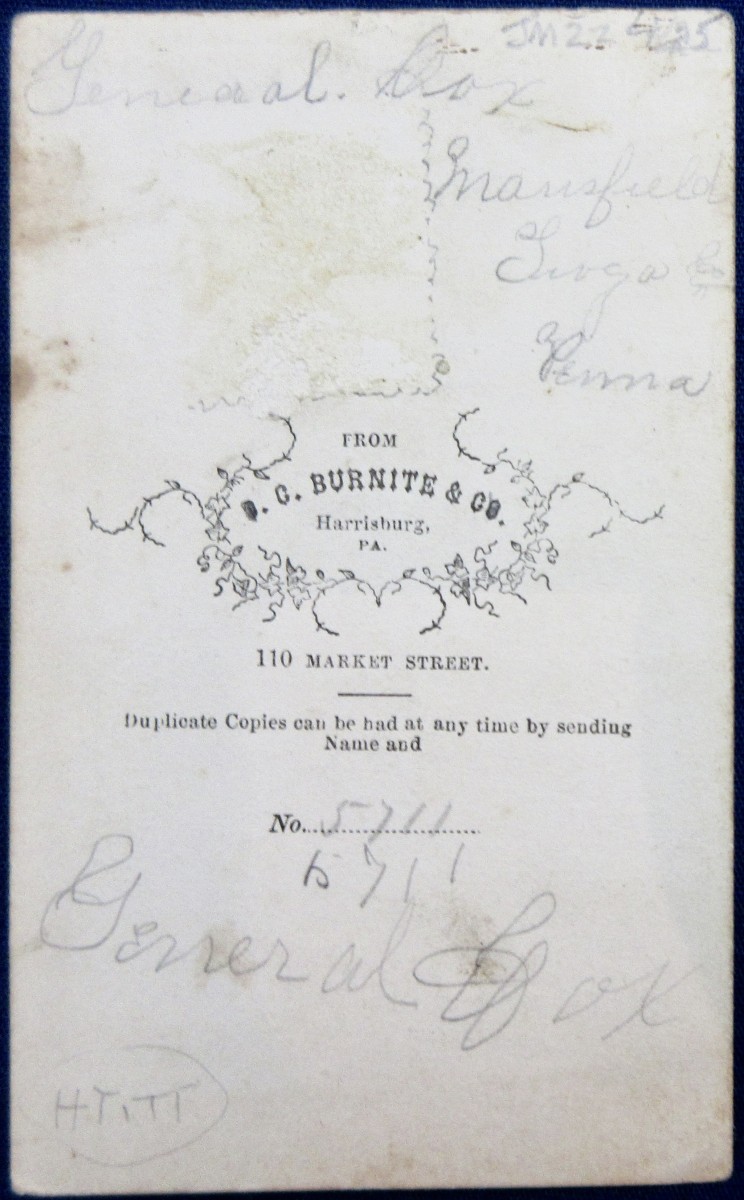 General. Cox
Mansfield
Tioga Co
Penna
FROM
D. C. BURNITE & CO.
Harrisburg,
PA.
110 MARKET STREET.
Duplicate Copies can be had at any time by sending
Name and
No. 5711
5711
General Cox